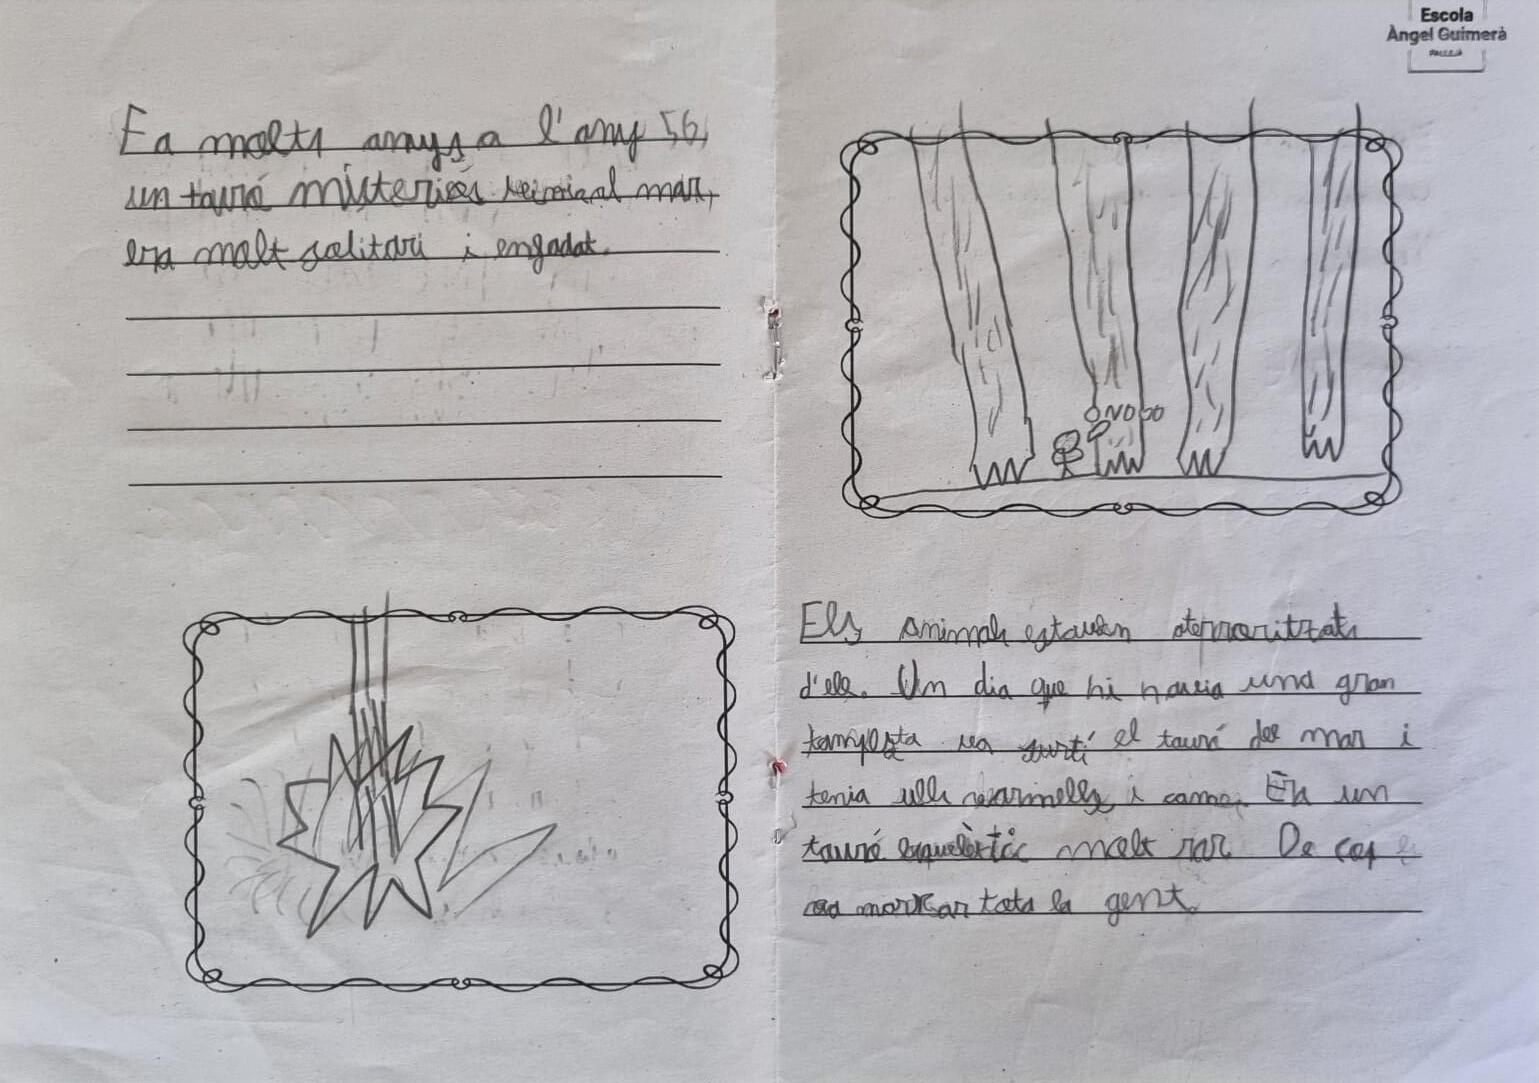 Fa molts anys a l'any 56,
un tauró misteriós al mar,
era molt solitari i enfadat.
Escola
Àngel Guimerà
PALLEJÀ
ONOOO
Els animals estaven aterroritzats
d'ell. Un dia que hi havia una gran
tampesta va surtí el tauró del mar i
tenia ulls vearmells i cames. Era un
tauró esquelètic molt rar. De cop
va marxar tota la gent.